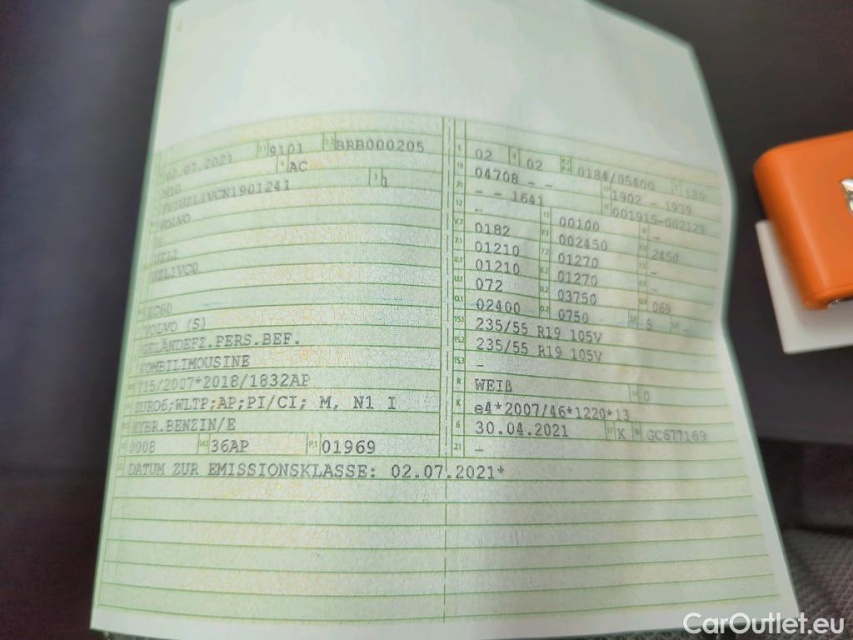 02.07.2021 9101 BRB000205
M1G AC
1
VOLVO
XC60
VOLVO (S)
GELÄNDEFZ.PERS.BEF.
KOMBILIMOUSINE
715/2007*2018/1832AP
EURO6;WLTP;AP;PI/CI; M, N1 I
HYBR.BENZIN/E
0008 36AP P.1 01969
DATUM ZUR EMISSIONSKLASSE: 02.07.2021*
02 02 0184/05400 180
04708 - -
- - 1641 1902 - 1939
- 00100 001915-002129
0182 002450 -
01210 01270 2450
01210 01270 -
072 03750 069
02400 0750 5
235/55 R19 105V
235/55 R19 105V
-
WEIß 0
e4*2007/46*1220*13
30.04.2021 K GC677169
-
CarOutlet.eu